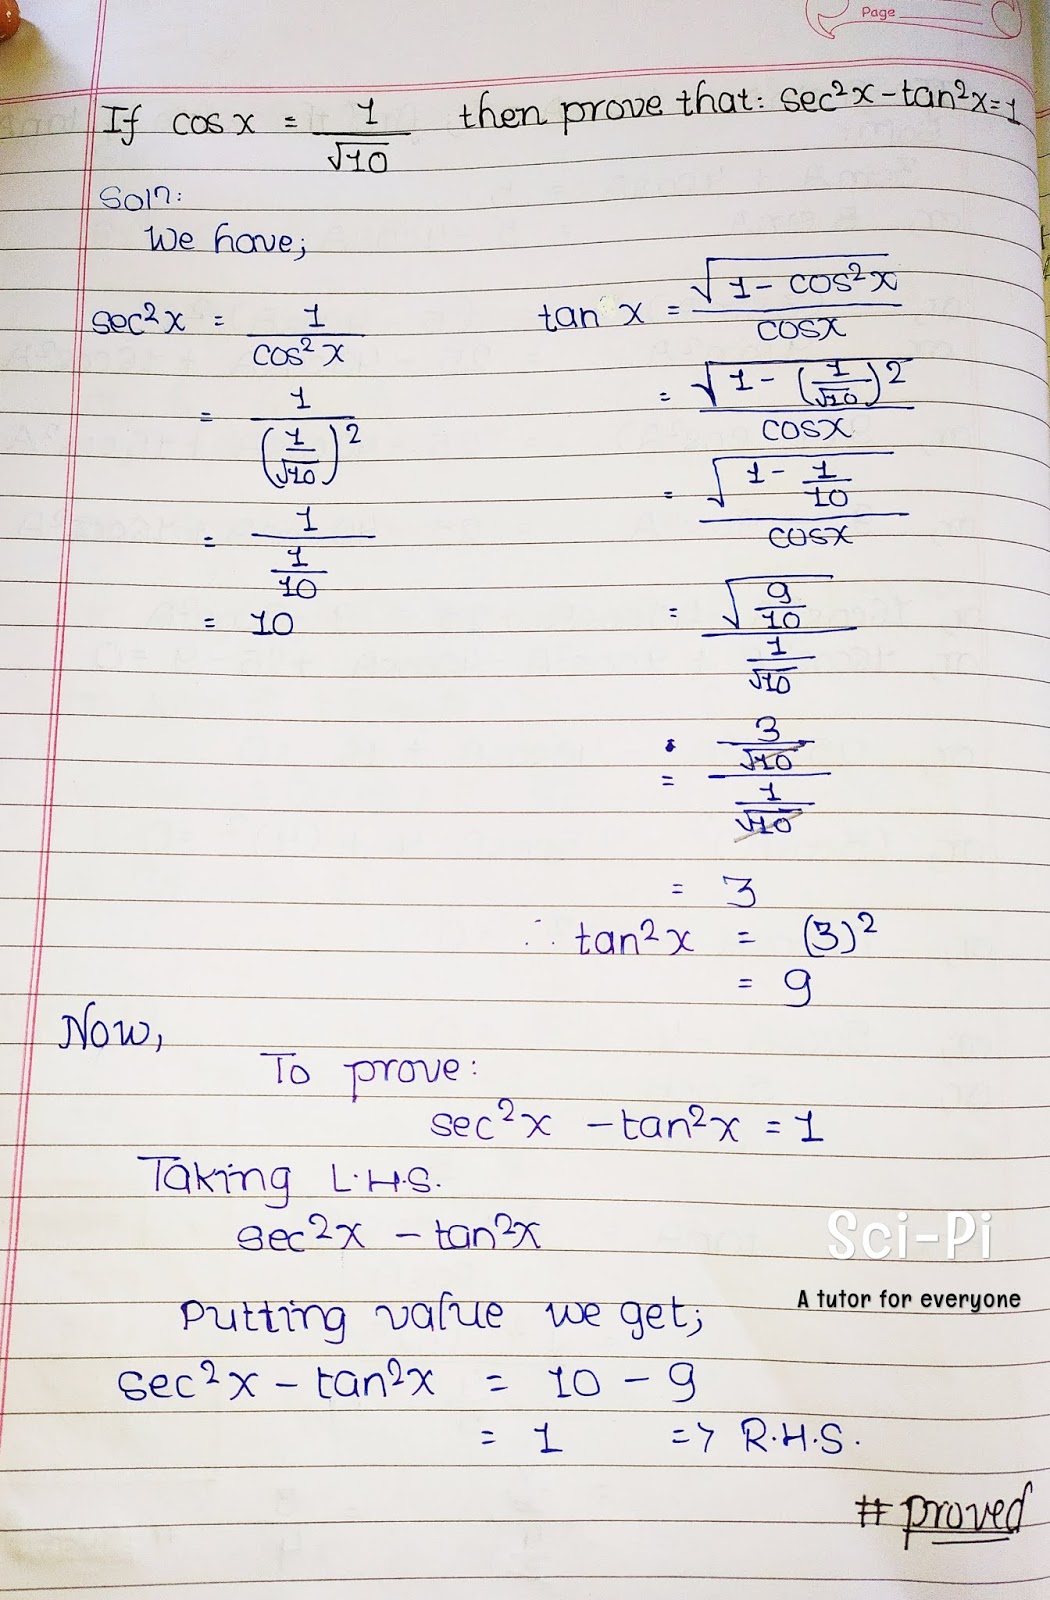 Page
If cos x = 1/√10 then prove that: sec²x - tan²x = 1
Sol?:
We have;
sec²x = 1/cos²x
= 1/(1/√10)²
= 1/(1/10)
= 10
tan x = √(1 - cos²x)/cosx
= √(1 - (1/√10)²)/cosx
= √(1 - 1/10)/cosx
= √(9/10)/(1/√10)
= (3/√10)/(1/√10)
= 3
∴ tan²x = (3)²
= 9
Now,
To prove:
sec²x - tan²x = 1
Taking L.H.S.
sec²x - tan²x
Sci-Pi
A tutor for everyone
Putting value we get;
sec²x - tan²x = 10 - 9
= 1 => R.H.S.
# proved